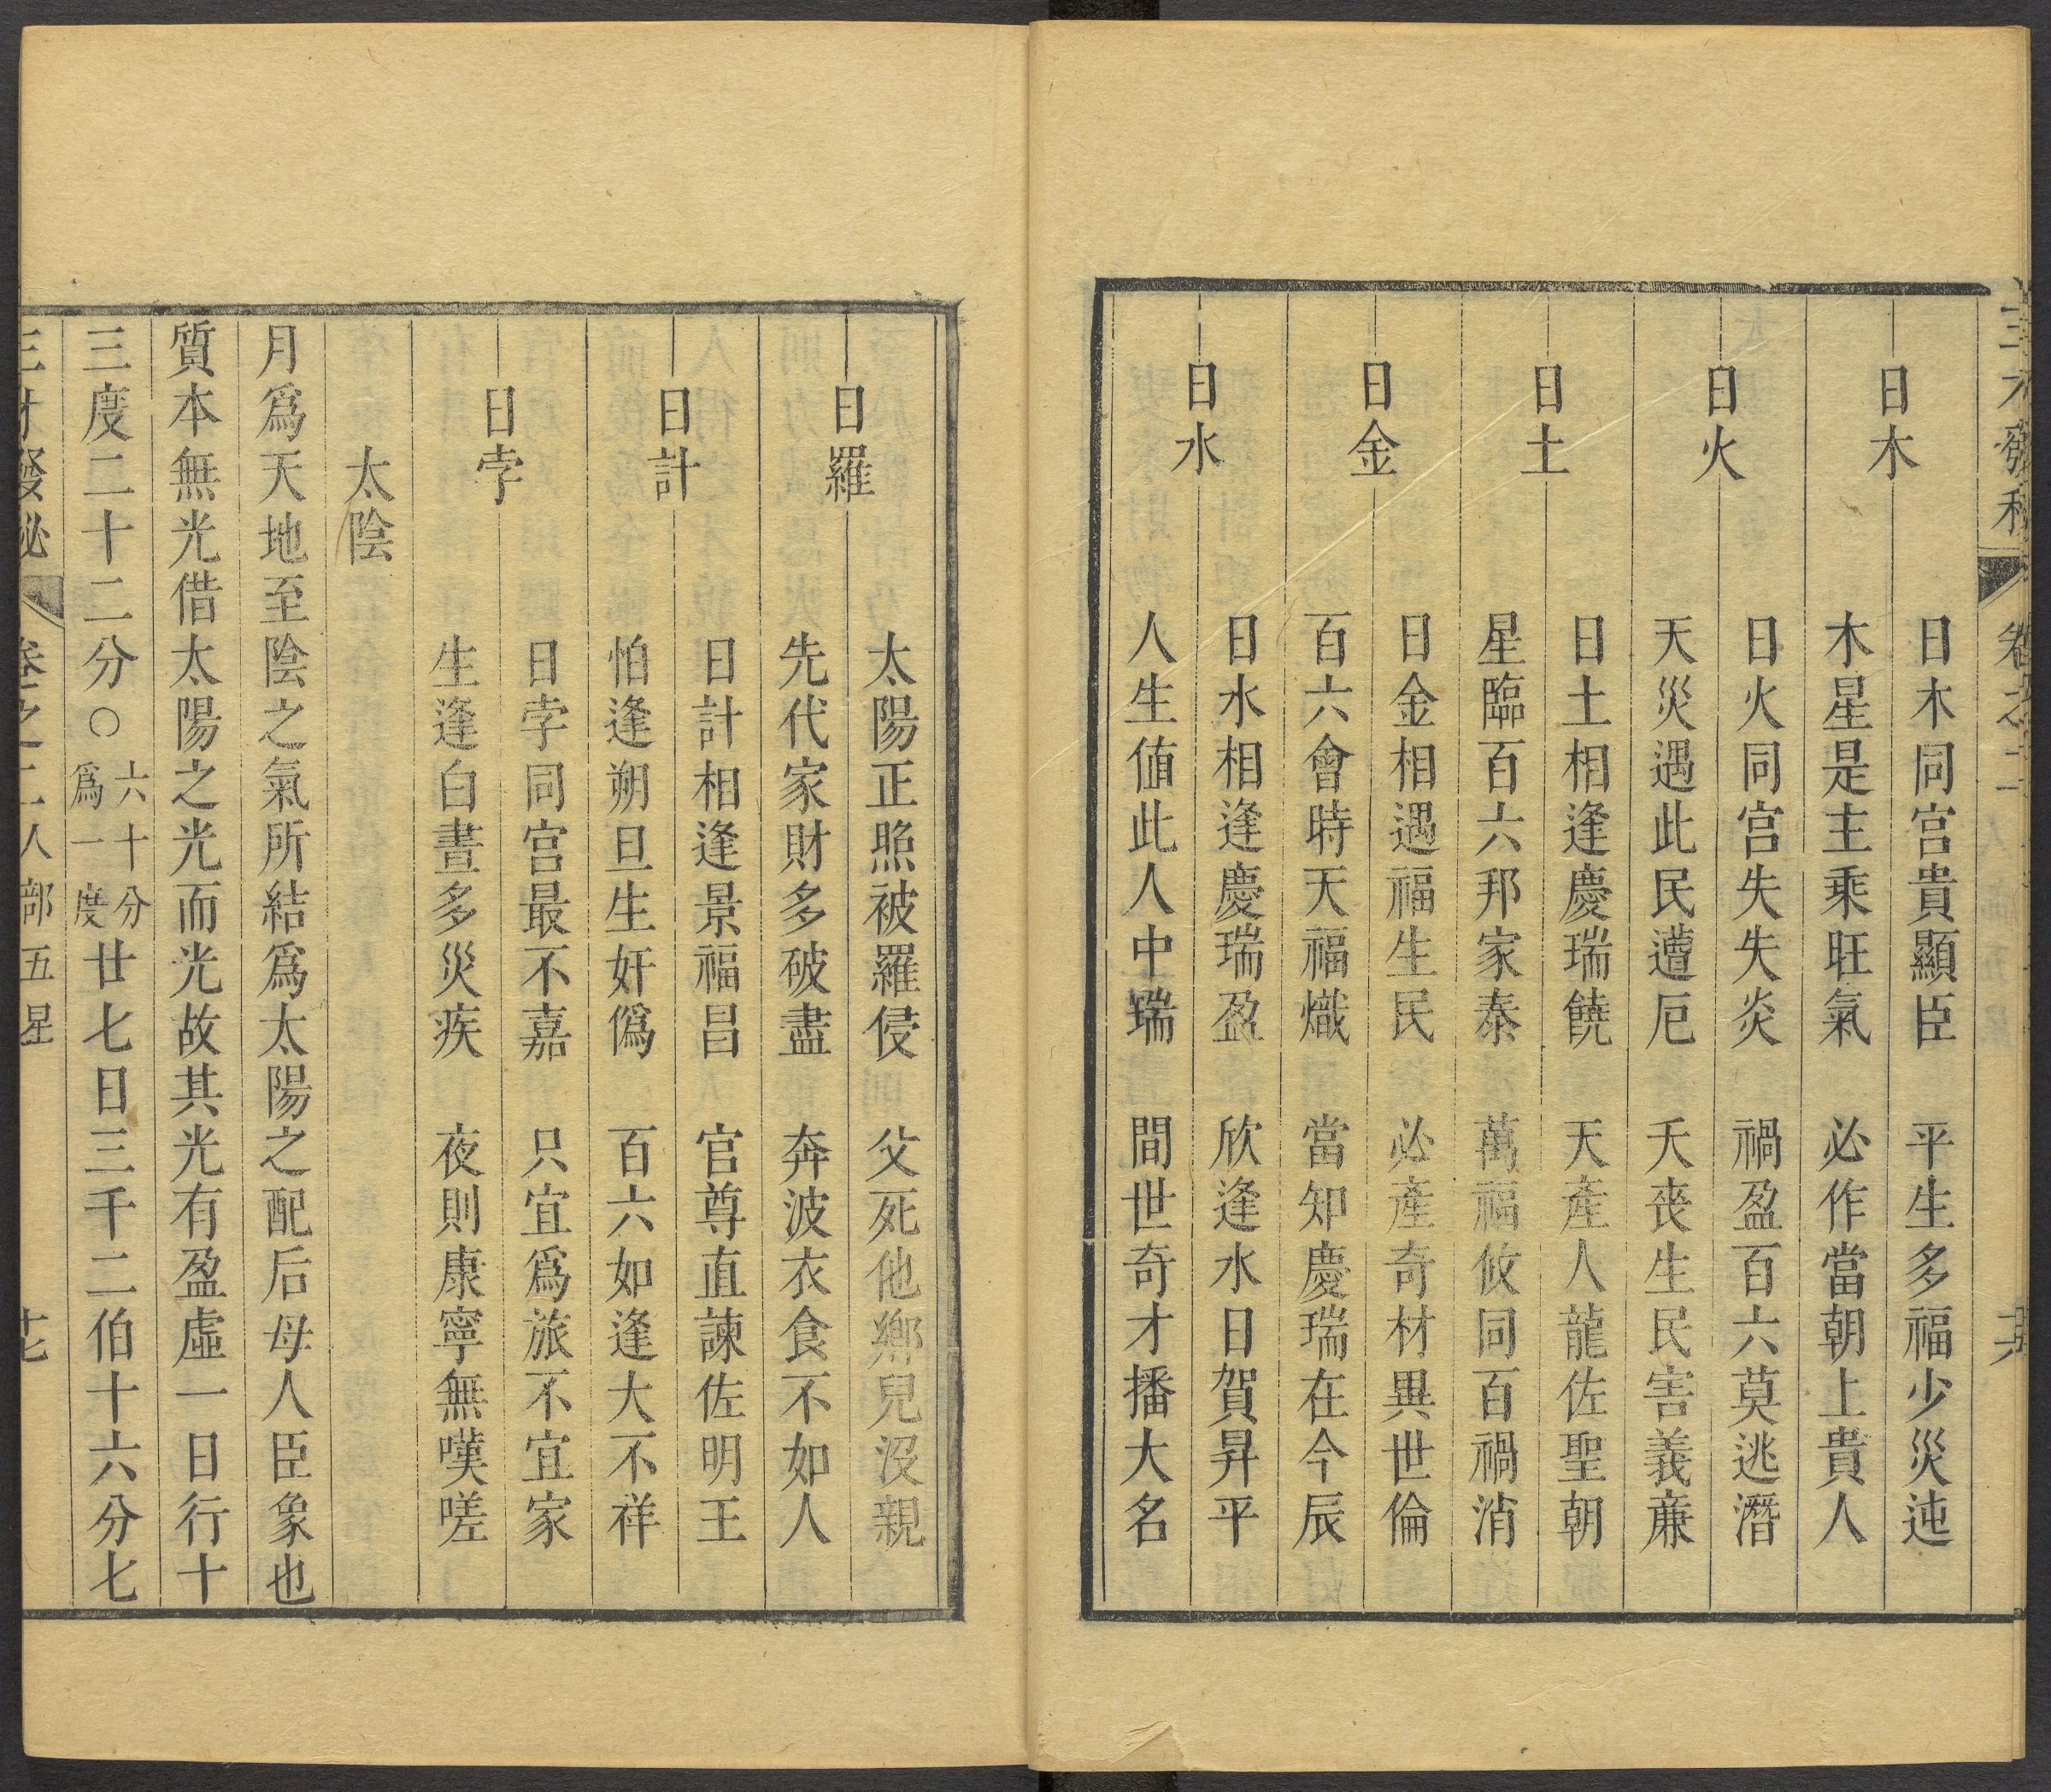 三才發秘 卷之二 十六
日木
日木同宮貴顯臣 平生多福少災迍
木星是主乘旺氣 必作當朝上貴人
日火
日火同宮失失炎 禍盈百六莫逃潛
天災遇此民遭厄 夭喪生民害義亷
日土
日土相逢慶瑞饒 天產人龍佐聖朝
星臨百六邦家泰 萬福攸同百禍消
日金
日金相遇福生民 必產奇材異世倫
百六會時天福熾 當知慶瑞在今辰
日水
日水相逢慶瑞盈 欣逢水日賀昇平
人生値此人中瑞 間世奇才播大名
日羅
太陽正照被羅侵 父死他鄉兒沒親
先代家財多破盡 奔波衣食不如人
日計
日計相逢景福昌 官尊直諫佐明王
怕逢朔旦生奸僞 百六如逢大不祥
日孛
日孛同宮最不嘉 只宜爲旅不宜家
生逢白晝多災疾 夜則康寧無嘆嗟
太陰
月爲天地至陰之氣所結爲太陽之配后母人臣象也
質本無光借太陽之光而光故其光有盈虛一日行十
三度二十二分○六十分爲一度廿七日三千二伯十六分七
三才發秘 卷之二人部五星 十七